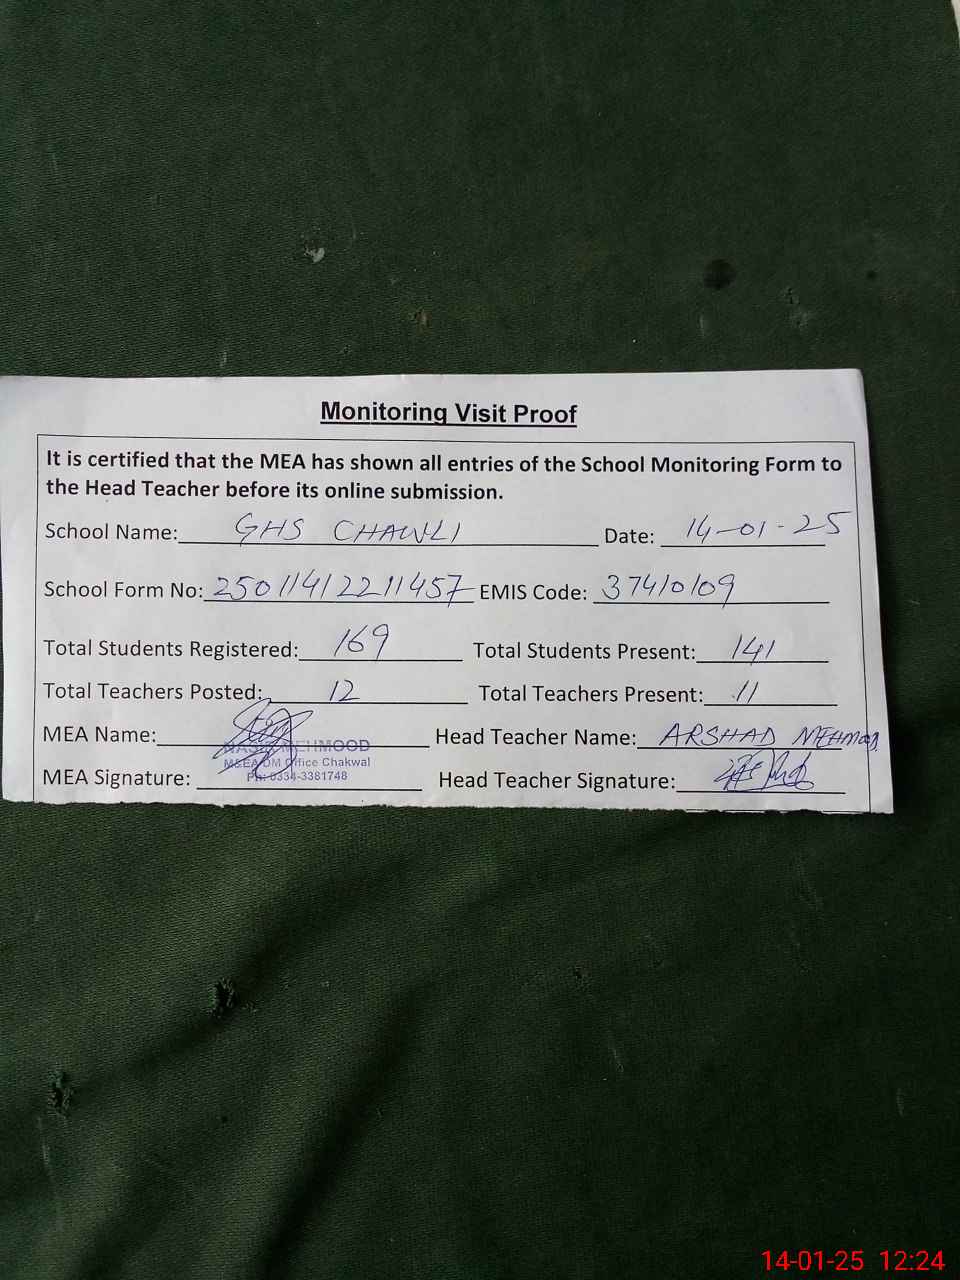 Monitoring Visit Proof
It is certified that the MEA has shown all entries of the School Monitoring Form to
the Head Teacher before its online submission.
School Name: GHS CHAWLI Date: 14-01-25
School Form No: 25011412211457 EMIS Code: 37410109
Total Students Registered: 169 Total Students Present: 141
Total Teachers Posted: 12 Total Teachers Present: 11
MEA Name: MEHMOOD Head Teacher Name: ARSHAD MEHMOOD
M&EA DM Office Chakwal
MEA Signature: Ph: 0334-3381748 Head Teacher Signature:
14-01-25 12:24